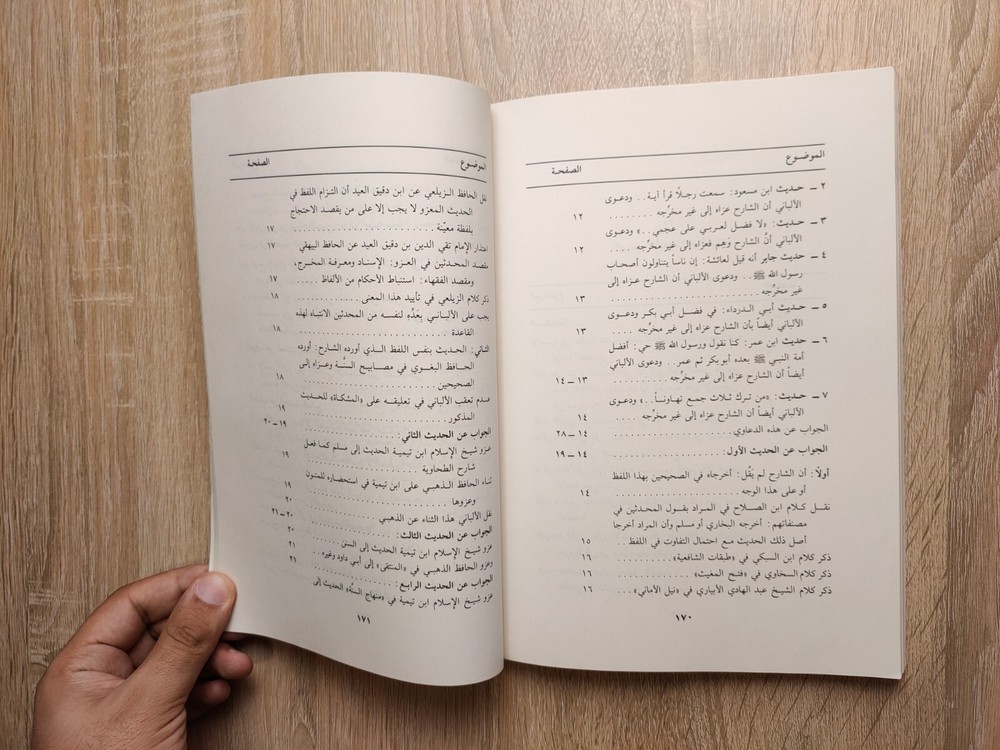 الموضوع الصفحة
٢ ـ حديث ابن مسعود: سمعت رجلًا قرأ آية.. ودعوى
الألباني أن الشارح عزاه إلى غير مخرِّجه ........ ١٢
٣ ـ حديث: «لا فضل لعربي على عجمي..» ودعوى
الألباني أنَّ الشارح وَهِم فعزاه إلى غير مخرِّجه .... ١٢
٤ ـ حديث جابر أنه قيل لعائشة: إن ناساً يتناولون أصحاب
رسول الله ﷺ.. ودعوى الألباني أن الشارح عزاه إلى
غير مخرِّجه .................... ١٣
٥ ـ حديث أبي الدرداء: في فضل أبي بكر ودعوى
الألباني أيضاً بأن الشارح عزاه إلى غير مخرِّجه .... ١٣
٦ ـ حديث ابن عمر: كنا نقول ورسول الله ﷺ حي: أفضل
أمة النبي ﷺ بعده أبو بكر ثم عمر.. ودعوى الألباني
أيضاً أن الشارح عزاه إلى غير مخرِّجه ......... ١٣ ـ ١٤
٧ ـ حديث: «من ترك ثلاث جمع تهاوناً..» ودعوى
الألباني أيضاً أن الشارح عزاه إلى غير مخرِّجه .... ١٤
الجواب عن هذه الدعاوي .................... ١٤ ـ ٢٨
الجواب عن الحديث الأول: .................... ١٤ ـ ١٩
أولاً: أن الشارح لم يَقُل: أخرجاه في الصحيحين بهذا اللفظ
أو على هذا الوجه .................... ١٤
نقل كلام ابن الصلاح في المراد بقول المحدثين في
مصنفاتهم: أخرجه البخاري أو مسلم وأن المراد أخرجا
أصل ذلك الحديث مع احتمال التفاوت في اللفظ .. ١٥
ذكر كلام ابن السبكي في «طبقات الشافعية» ......... ١٦
ذكر كلام السخاوي في «فتح المغيث» ............. ١٦
ذكر كلام الشيخ عبد الهادي الأبياري في «نيل الأماني» ... ١٦
١٧٠
الموضوع الصفحة
نقل الحافظ الزيلعي عن ابن دقيق العيد أن التزام اللفظ في
الحديث المعزو لا يجب إلا على من يقصد الاحتجاج
بلفظة معيّنة .................... ١٧
اعتذار الإمام تقي الدين بن دقيق العيد عن الحافظ البيهقي ١٧
مقصد المحدثين في العزو: الإسناد ومعرفة المخرج،
ومقصد الفقهاء: استنباط الأحكام من الألفاظ ..... ١٧
ذكر كلام الزيلعي في تأييد هذا المعنى ............. ١٨
يجب على الألباني بِعَدِّهِ لنفسه من المحدثين الانتباه لهذه
القاعدة .................... ١٨
الثاني: الحديث بنفس اللفظ الذي أورده الشارح: أورده
الحافظ البغوي في مصابيح السنَّة وعزاه إلى
الصحيحين .................... ١٨
عدم تعقب الألباني في تعليقه على «المشكاة» للحديث
المذكور .................... ١٩
الجواب عن الحديث الثاني: .................... ١٩ ـ ٢٠
عزو شيخ الإسلام ابن تيمية الحديث إلى مسلم كما فعل
شارح الطحاوية .................... ١٩
ثناء الحافظ الذهبي على ابن تيمية في استحضاره للمتون
وعزوها .................... ١٩
نقل الألباني هذا الثناء عن الذهبي ............. ٢٠
الجواب عن الحديث الثالث: .................... ٢٠ ـ ٢١
عزو شيخ الإسلام ابن تيمية الحديث إلى السنن ..... ٢٠
وعزو الحافظ الذهبي في «المنتقى» إلى أبي داود وغيره .. ٢١
الجواب عن الحديث الرابع: .................... ٢١
عزو شيخ الإسلام ابن تيمية في «منهاج السنَّة» الحديث إلى
١٧١